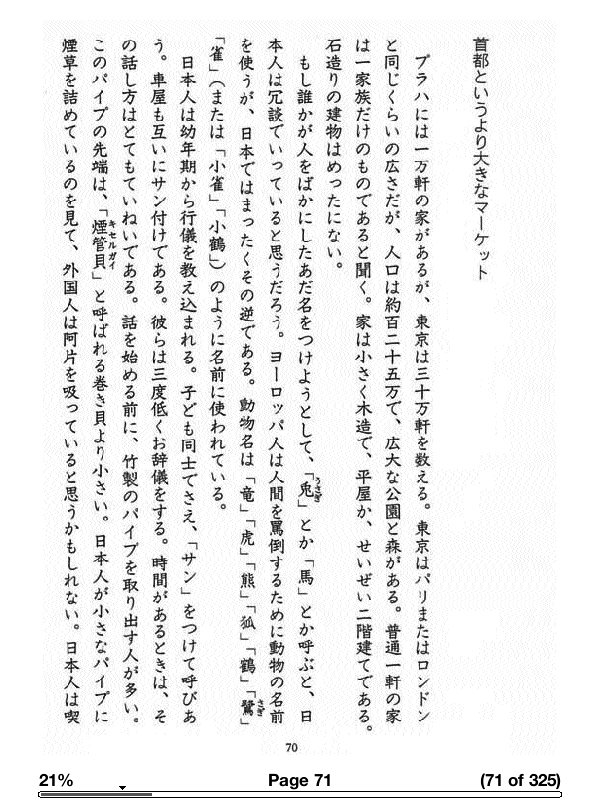 首都というより大きなマーケット
プラハには一万軒の家があるが、東京は三十万軒を数える。東京はパリまたはロンドン
と同じくらいの広さだが、人口は約百二十五万で、広大な公園と森がある。普通一軒の家
は一家族だけのものであると聞く。家は小さく木造で、平屋か、せいぜい二階建てである。
石造りの建物はめったにない。
もし誰かが人をばかにしたあだ名をつけようとして、「兎」とか「馬」とか呼ぶと、日
うさぎ
本人は冗談でいっていると思うだろう。ヨーロッパ人は人間を罵倒するために動物の名前
を使うが、日本ではまったくその逆である。動物名は「竜」「虎」「熊」「狐」「鶴」「鷺」
さぎ
「雀」(または「小雀」「小鶴」)のように名前に使われている。
日本人は幼年期から行儀を教え込まれる。子ども同士でさえ、「サン」をつけて呼びあ
う。車屋も互いにサン付けである。彼らは三度低くお辞儀をする。時間があるときは、そ
の話し方はとてもていねいである。話を始める前に、竹製のパイプを取り出す人が多い。
このパイプの先端は、「煙管貝」と呼ばれる巻き貝より小さい。日本人が小さなパイプに
キセルガイ
煙草を詰めているのを見て、外国人は阿片を吸っていると思うかもしれない。日本人は喫
70
21%
Page 71
(71 of 325)